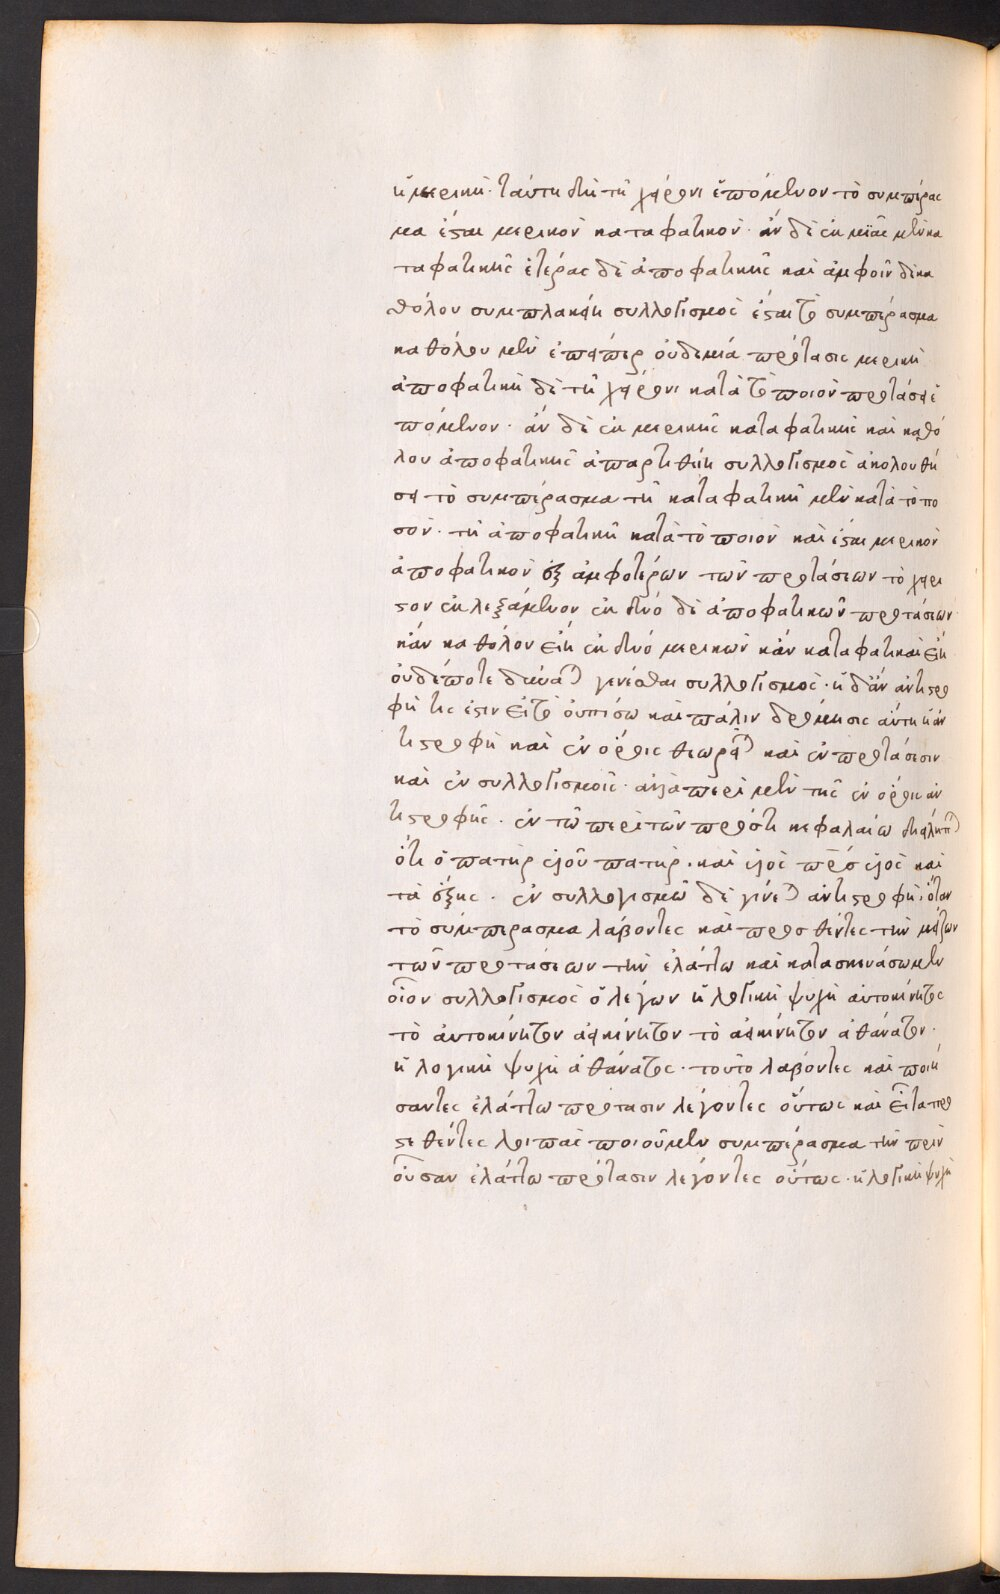 ἡ μερικὴ· ταύτη δὴ τῆ χείρονι ἑπόμενον τὸ συμπέρας
μα ἔσται μερικὸν καταφατικόν· ἂν δὲ ἐκ μϊᾶς μὲν κα
ταφατικῆς ἑτέρας δὲ ἀποφατικῆς καὶ ἀμφοῖν δὲ κα
θόλου συμπλακείη συλλογισμὸς ἔσται τὸ συμπέρασμα
καθόλου μὲν ἐπείπερ οὐδεμιά πρότασις μερικὴ
ἀποφατικὴ δὲ τῆ χείρονι κατὰ τὸ ποιὸν προτάσει ἑ
πόμενον· ἂν δὲ ἐκ μερικῆς καταφατικῆς καὶ καθό
λου ἀποφατικῆς ἀπαρτιθείη συλλογισμὸς ἀκολουθή
σει τὸ συμπέρασμα τῆ καταφατικῆ μὲν κατὰ τὸ πο
σὸν· τῆ ἀποφατικῆ κατὰ τὸ ποιὸν καὶ ἔσται μερικὸν
ἀποφατικὸν ἐξ ἀμφοτέρων τῶν προτάσεων τὸ χεῖρι
στον ἐκλεξάμενον ἐκ δυό δὲ ἀποφατικῶν προτάσεων
κἂν καθόλου εἴη ἐκ δυό μερικῶν κἂν καταφατικαὶ εἴη
οὐδέποτε δύναται γενέσθαι συλλογισμὸς· ἡ δ' ἂν ἀντιστρο
φή τις ἐστιν εἰς τὸ οὐπίσω καὶ πάλιν δρόμησις αὕτη ἡ ἀν
τιστροφὴ καὶ ἐν ὅροις θεωρεῖται καὶ ἐν προτάσεσιν
καὶ ἐν συλλογισμοῖς· ἀλλὰ περὶ μὲν τῆς ἐν ὅροις ἀν
τιστροφῆς· ἐν τῶ περὶ τῶν πρόστι κεφαλαίω διείληπται
ὅτι ὁ πατὴρ υἱοῦ πατὴρ· καὶ υἱὸς πρὸς υἱὸς καὶ
τὰ ἑξῆς· ἐν συλλογισμῶ δὲ γίνεται ἀντιστροφὴ· ὅταν
τὸ συμπερασμα λαβοντες καὶ προσθέντες τὴν μείζων
τῶν προτάσεων τὴν ἐλάττω καὶ κατασκευάσωμεν
οἷον συλλογισμὸς ὁ λέγων ἡ λογικὴ ψυχὴ αὐτοκίνητος
τὸ ἀυτοκίνητον ἀεικίνητον τὸ ἀεικίνητον ἀθάνατον·
ἡ λογικὴ ψυχὴ ἀθάνατος· τουτο λαβόντες καὶ ποιή
σαντες ἐλάττω πρότασιν λέγοντες οὕτως καὶ εἶτα προ
στεθέντες λοιπὰς ποιοῦμεν συμπέρασμα τὴν πρὶν
οὖσαν ἐλάττω πρότασιν λέγοντες οὕτως· ἡ λογικὴ ψυχὴ